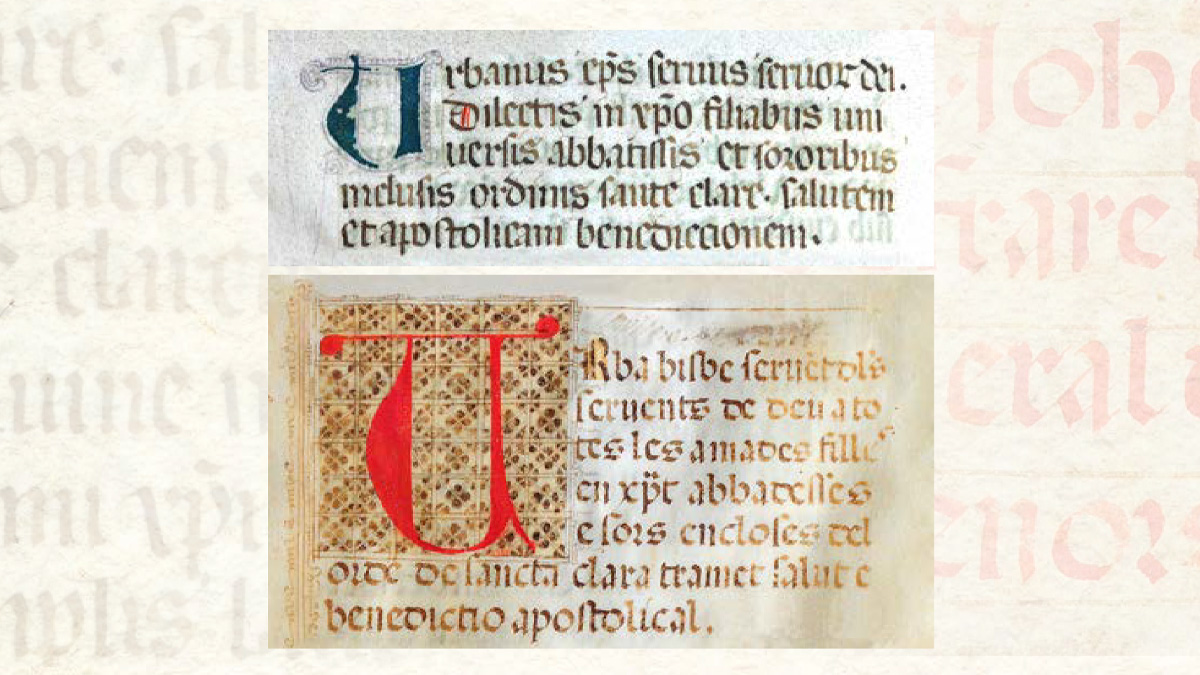 Urbanus ep̄s seruus seruor dei.
Dilectis in xp̄o filiabus uni
uersis abbatissis et sororibus
inclusis ordinis sancte clare. salutem
et apostolicam benediccionem.
URba bisbe seruent dels
seruents de deu a to
tes les amades filles
en xp̄t abbadesses
e sors encloses del
orde de sancta clara tramet salut e
benedictio apostolical.